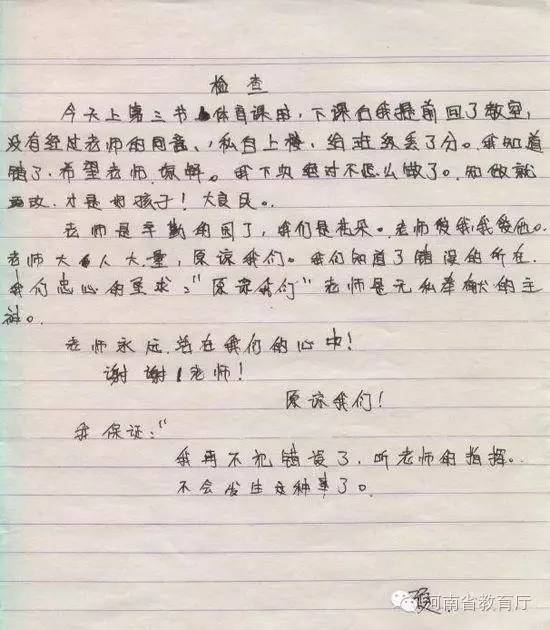 检查
今天上第三节体育课时,下课自我提前回了教室,
没有经过老师的同意、私自上楼,给班级丢了分。我知道
错了,希望老师原解。我下次绝对不怎么做了。知做就
改.才是好孩子!大良民。
老师是辛勤的园丁,我们是花朵。老师爱我,我爱他。
老师大人大量,原谅我们。我们知道了错误的所在.
我们忠心的要求:"原谅我们"老师是无私奉献的主
神。
老师永远活在我们的心中!
谢谢老师!
原谅我们!
我保证:"
我再不犯错误了,听老师的指挥。
不会发生这种事了。
河南省教育厅